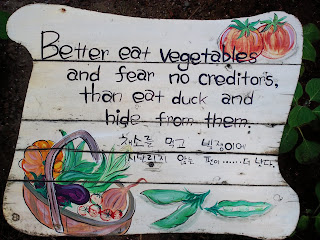 Better eat vegetables
and fear no creditors,
than eat duck and
hide from them.
채소를 먹고 빚쟁이에
시달리지 않는 편이......더 낫다.